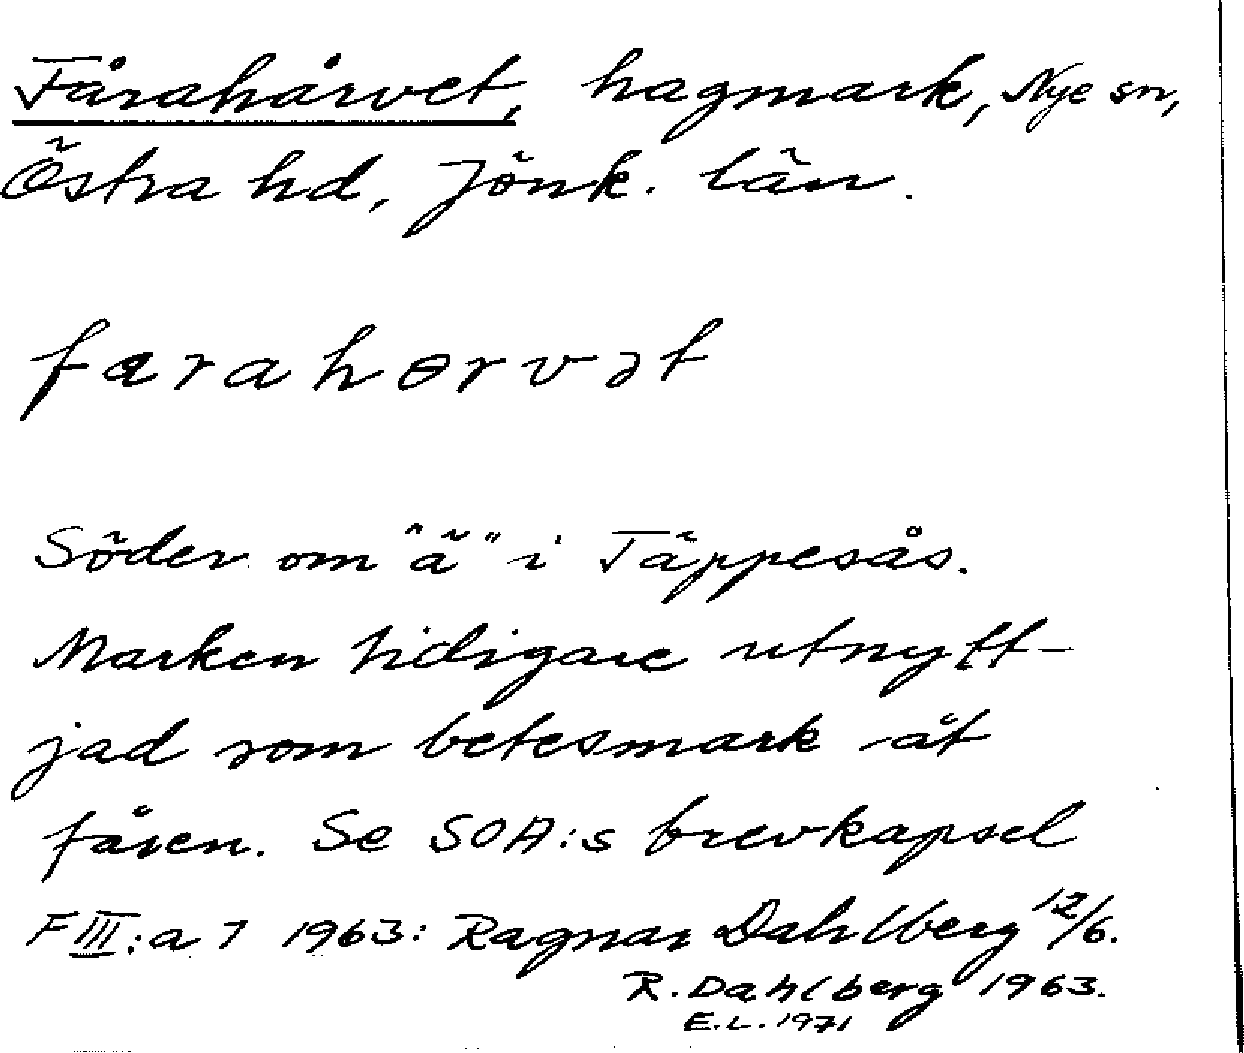 Fårahårvet, hagmark, Nye sn,
Östra hd, Jönk. län.
farahɵrvət
Söder om "ä" i Täppesås.
Marken tidigare utnytt-
jad som betesmark åt
fåren. Se SOA:s brevkapsel
F III:a 7 1963: Ragnar Dahlberg 12/6.
R. Dahlberg 1963.
E.L. 1971